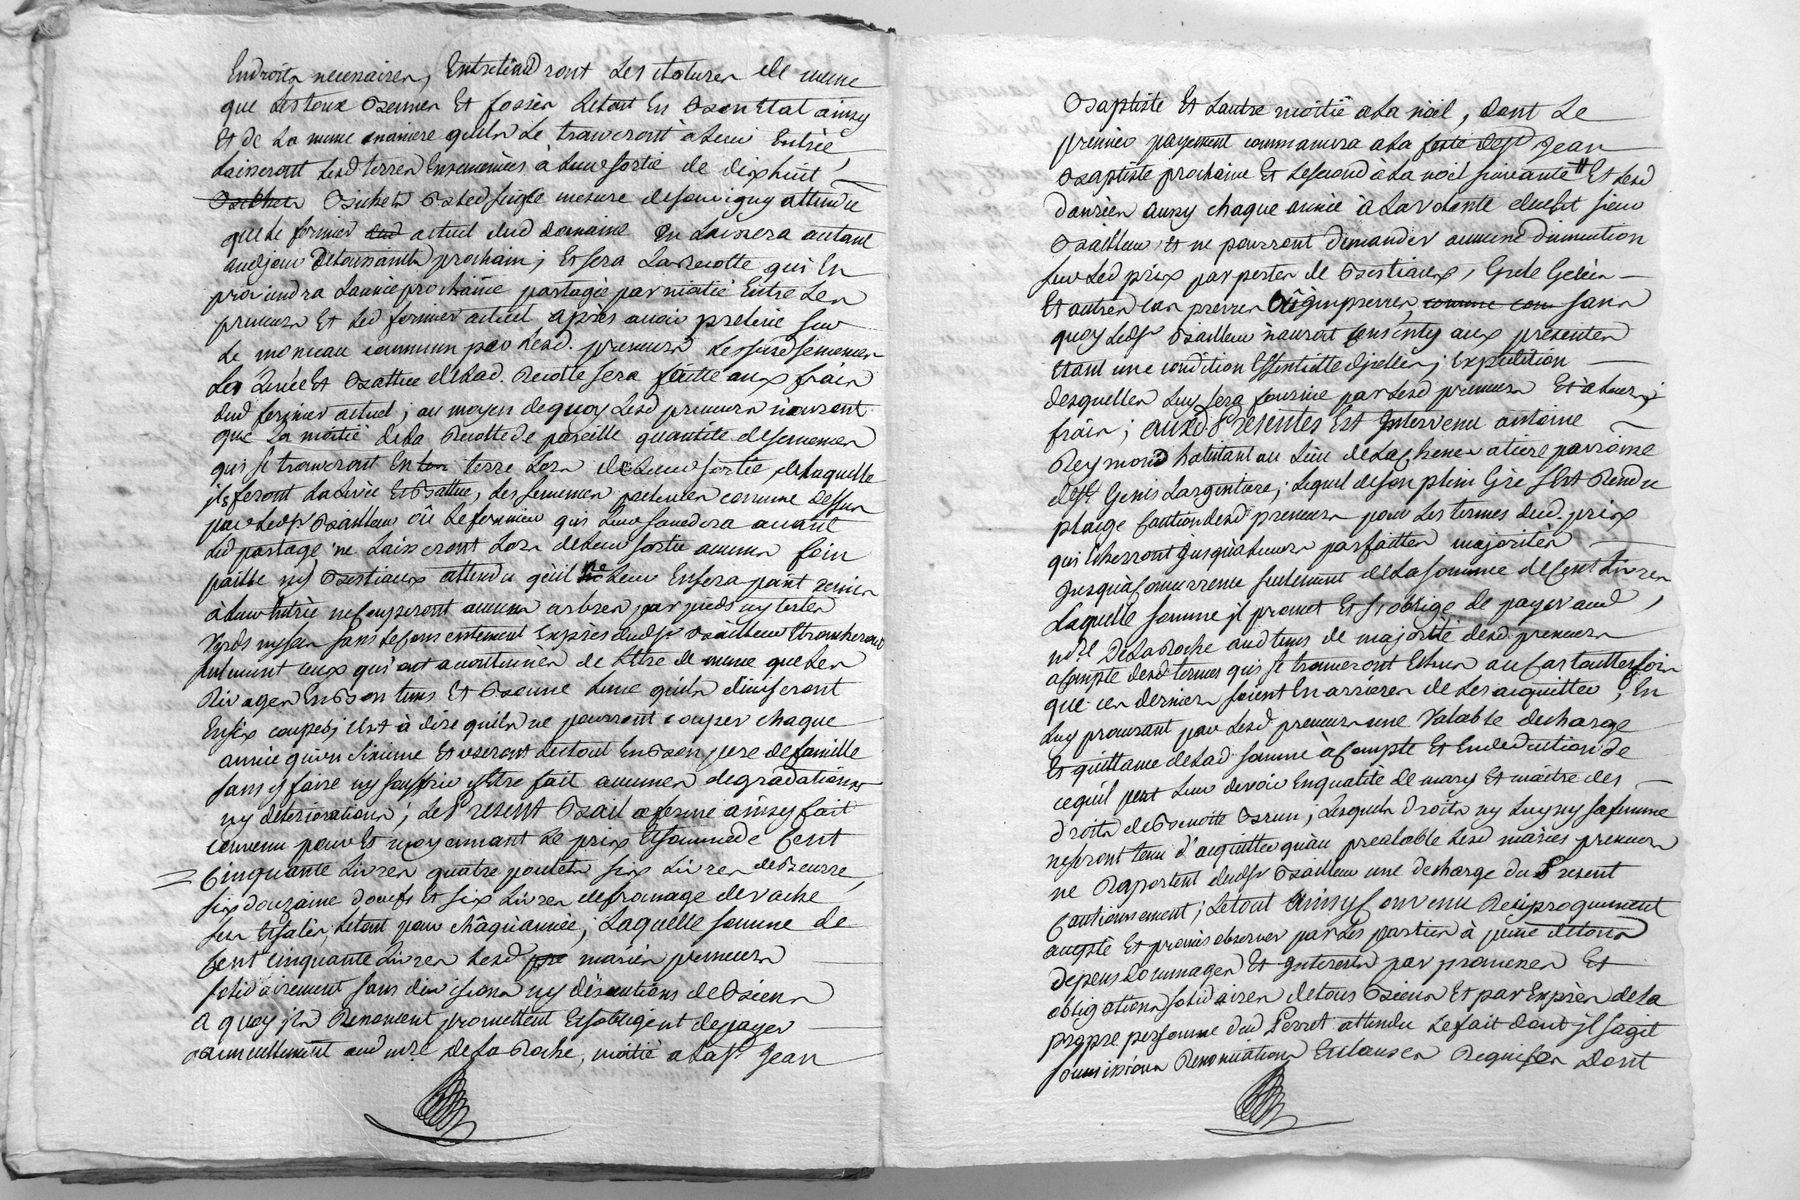 Endroits necessaires, Entretiendront Les clotures de meme
que Les toux Bennes Et fosses Letout En Bon Etat ainsy
Et de La meme maniere quils Le trouveront à Leur Entrée
Laisseront Lesd terres Ensemencées à Leur sortie de dixhuit
Bichets Bled seigle mesure de souvigny attendu
que le fermier actuel dud domaine En Laissera autant
audjour Detoussaints prochain, Et sera La Recolte qui En
proviendra L'année prochaine partagée par moitié Entre Les
preneurs Et Led fermier actuel après avoir prelevé sur
Le monceau commun par Lesd. preneurs Les susd semences
Les Levée Et Battue de Lad. Recolte sera faitte aux frais
dud fermier actuel; au moyen dequoy Lesd preneurs n'auront
que La moitié dela Recolte de pareille quantité de semences
qui se trouveront En terre Lors de Leur sortie, de Laquelle
ils feront La Levée Et Battue, Les semences prelevées comme dessus
par Ledsr Bailleur ou Le fermier qui Leur succedera avant
Led partage ne Laisseront Lors de Leur sortie aucuns foin
paille ny Bestiaux attendu qu'il ne Leur En sera point remis
à Leur Entrée ne Couperont aucuns arbres par pieds ny testes
Verds ny secs sans Le consentement Exprès dudsr Bailleur
seulement ceux qui ont accoutumés de L'être de meme que Les
Rivages En Bon tems Et Bonne Lune qu'ils diviseront
En six coupes, C'est à dire quils ne pourront couper chaque
année qu'un sixieme Et useront du tout En Bon pere de famille
sans y faire ny souffrir Etre fait aucunes degradations
ny deteriorations; Le Present Bail a ferme ainsy fait
convenu pour Et moyennant Le prix Et somme de Cent
Cinquante Livres quatre poulets six Livres de Beurre,
six douzaine d'oeufs Et six Livres de fromage de vache
sec Et salés, Letout pour chaqu'année; Laquelle somme de
Cent cinquante Livres Lesd mariés preneurs
solidairement sans division ny discutions de Biens
a quoy ils Renoncent promettent Et s'obligent de payer
annuellement aud mre. De La Roche, moitié a La st. Jean
Baptiste Et L'autre moitié a La noël, dont Le
premier payement commancera a La feste de St Jean
Baptiste prochaine Et Le second à La noël suivante # Et Lesd
danrées aussy chaque année à La volonté dudit sieur
Bailleur, et ne pourront demander aucune diminution
sur Led prix par pertes de Bestiaux, Grele Gelées
Et autres cas prevus ou imprevus, comme con sans
quoy Ledsr Bailleur n'auroit consenty aux presentes
Etant une condition Essentielle d'jcelles; Expedition
desquelles Luy sera fournie par Lesd preneurs Et à Leurs
frais; auxd. Presentes Est Intervenu antoine
Reymond habitant au Lieu de La parroisse
de St. Genis Largentiere; Lequel de son plein Gré s'Est Rendu
plaige Caution desd preneurs pour Les termes dud. prix
qui Echerront jusqu'à Leurs parfaittes majorités
Jusqu'à Concurrence seulement de La somme de Cent Livres
Laquelle somme jl promet Et s'oblige de payer aud
mre. De La Roche aud tems de majorité desd. preneurs
a Compte desd termes qui se trouveront Echus au Cas touttesfois
que ces derniers soient En arriere de Les acquitter, En
Luy procurant par Lesd preneurs une Valable decharge
Et quittance de Lad. somme à Compte Et En deduction de
ce qu'il peut Leur devoir En qualité de mary Et maître des
droits de Benoitte Brun; Lesquels droits ny Luy ny sa femme
ne seront tenu d'acquitter qu'au prealable Lesd mariés preneurs
ne Raportent dudsr Bailleur une decharge du Present
Cautionnement; Letout Ainsy Convenu Reciproquement
accepté Et promis observer par Les parties à peine de tous
depens Dommages Et Interests par promesses Et
obligations solidaires de tous Biens Et par Exprès de La
propre personne dud Perret attendu Le fait dont jl s'agit
soumissions Renonciations Et clauses Requises Dont